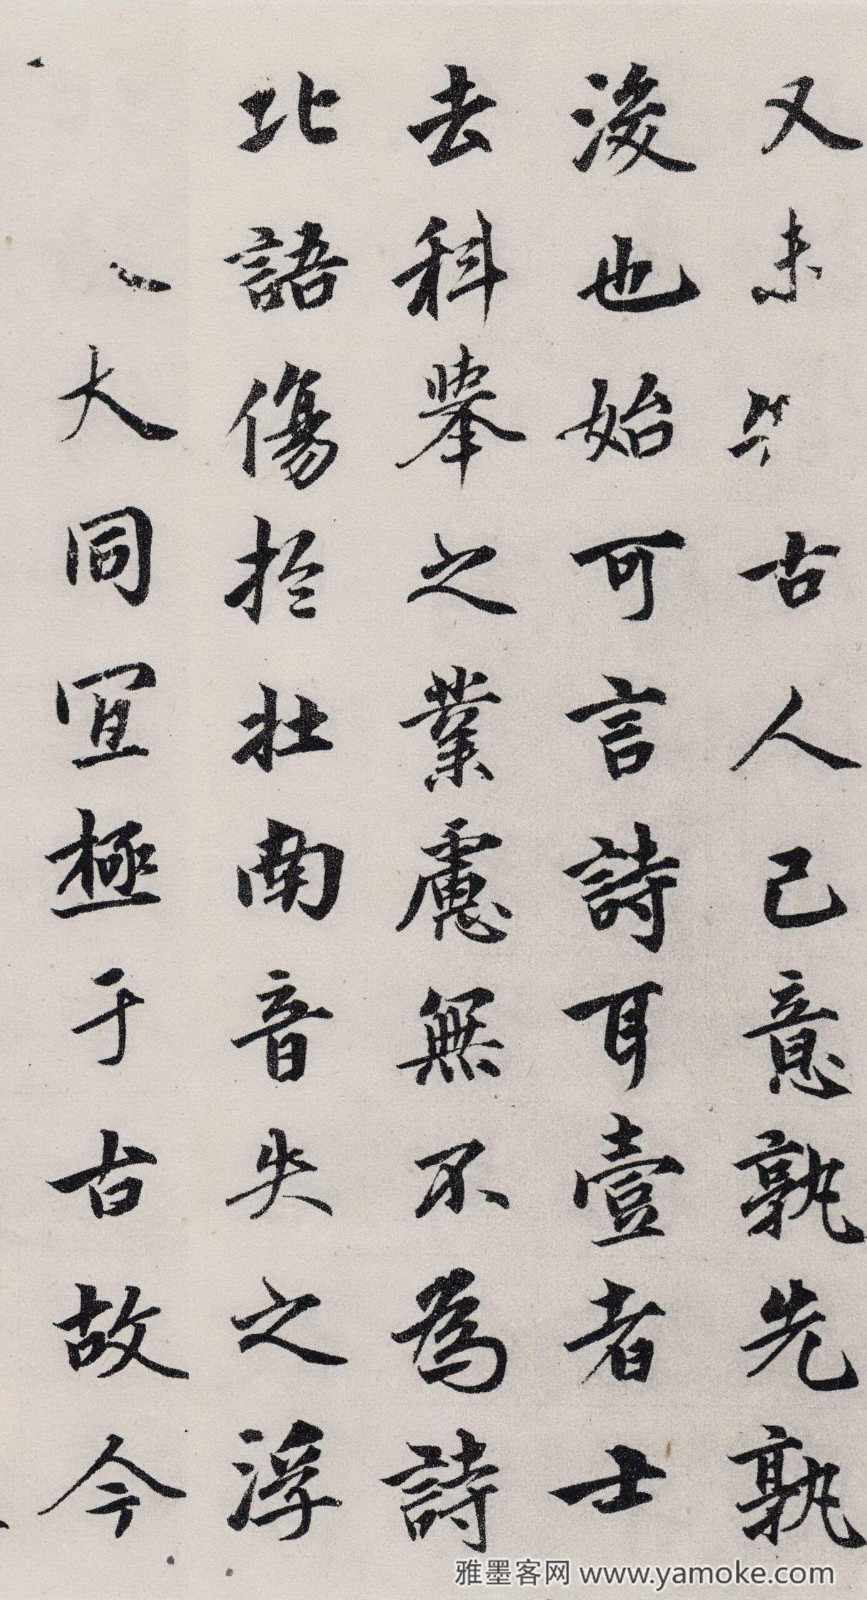 又未古人己意孰先孰
後也始可言詩耳壹者士
去科舉之業慮無不為詩
北語傷於壯南音失之浮
大同宜極于古故今
雅墨客网 www.yamoke.com